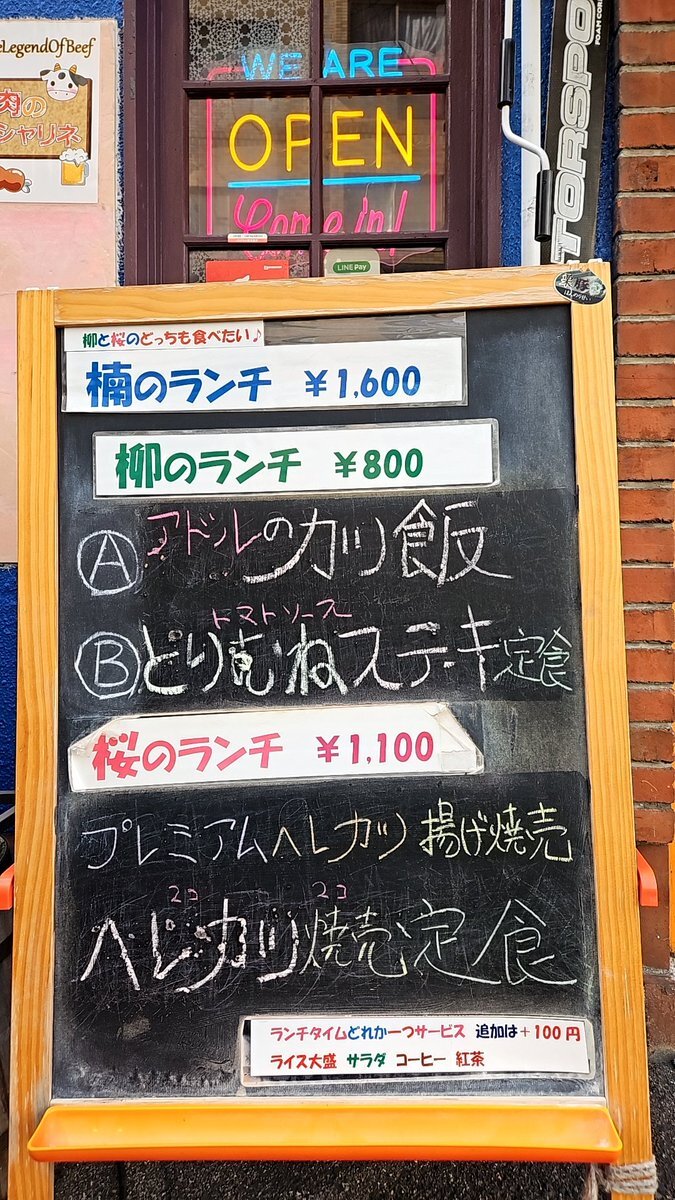 eLegendOfBeef
肉の
シャリネ
WE ARE
OPEN
Come in!
TORSPO
LINE Pay
柳と桜のどっちも食べたい♪
楠のランチ ￥1,600
柳のランチ ￥800
Ⓐアドルのカツ飯
トマトソース
Ⓑとりむねステーキ定食
桜のランチ ￥1,100
プレミアムヘレカツ 揚げ焼売
2コ 2コ
ヘレカツ焼売定食
ランチタイムどれか一つサービス 追加は+100円
ライス大盛 サラダ コーヒー 紅茶